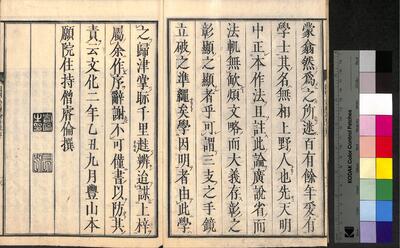 蒙翕然爲之所迷百有餘年爰有
學士其名無相上野人也先天明
中正本作法且註此論廣說省而
法軌無缺煩文略而大義存彰之
彰顯之顯者乎可謂三支之手鏡
立破之準繩矣學因明者由此學
之歸津堂聏千里趍辨迫謀上梓
屬余作序辭謝不可僅書以防其
責云文化二年乙丑九月豐山本
願院住持僧
倫撰
KODAK Color Control Patches